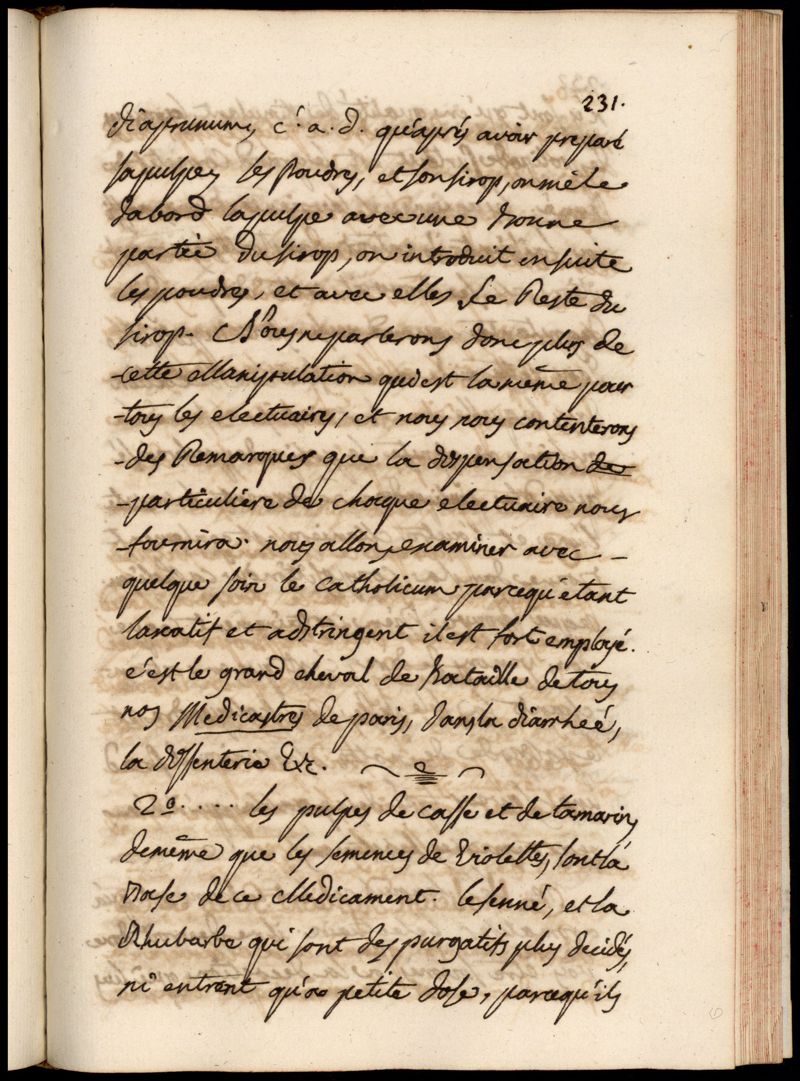 231.
diaprunum, c'. a. d. qu'après avoir preparé
sa pulpe, ses Poudres, et son sirop, on mêle
dabord la pulpe avec une bonne
partie du sirop, on introduit ensuite
les poudres, et avec elles Le Reste du
sirop. Nous ne parlerons donc plus de
cette Manipulation qui est la même pour
tous les electuaires, et nous nous contenterons
des Remarques que la dispensation de
particuliere de chaque electuaire nous
fournira. nous allons examiner avec
quelque soin le Catholicum parcequ'étant
laxatif et adstringent il est fort employé.
c'est le grand cheval de Bataille de tous
nos Medicastres de paris, dans la diarrheé,
la dissenterie &c.
2º. . . . les pulpes de casse et de tamarins,
demême que les semences de Violettes, sont la
Base de ce Medicament. le senné, et la
Rhubarbe qui sont des purgatifs plus decidés,
n'i entrent qu'a petite dose, parcequ'ils